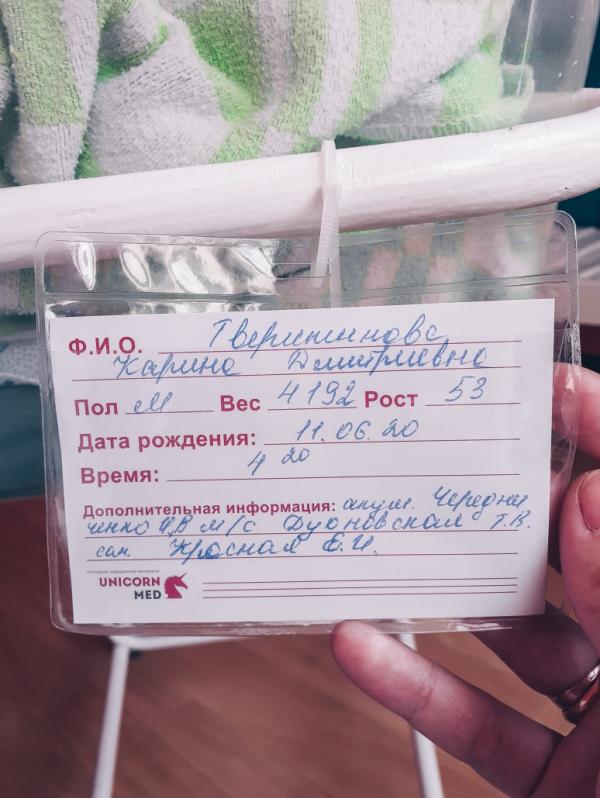 Ф.И.О. Тверитинова
Карина Дмитриевна
Пол М Вес 4192 Рост 53
Дата рождения: 11.06.20
Время: 4 20
Дополнительная информация: акуш. Чередни
ченко И.В м/с Дуюновская Т.В.
сан. Красная Е.И.
UNICORN
MED